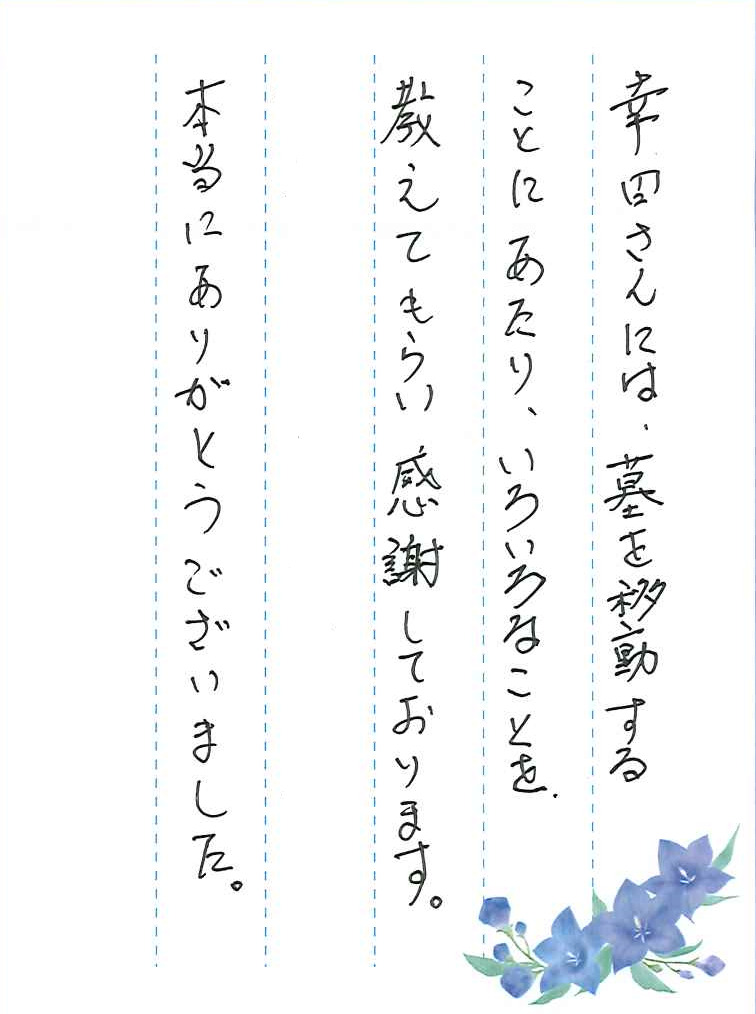 幸田さんには、墓を移動する
ことにあたり、いろいろなことを、
教えてもらい感謝しております。
本当にありがとうございました。